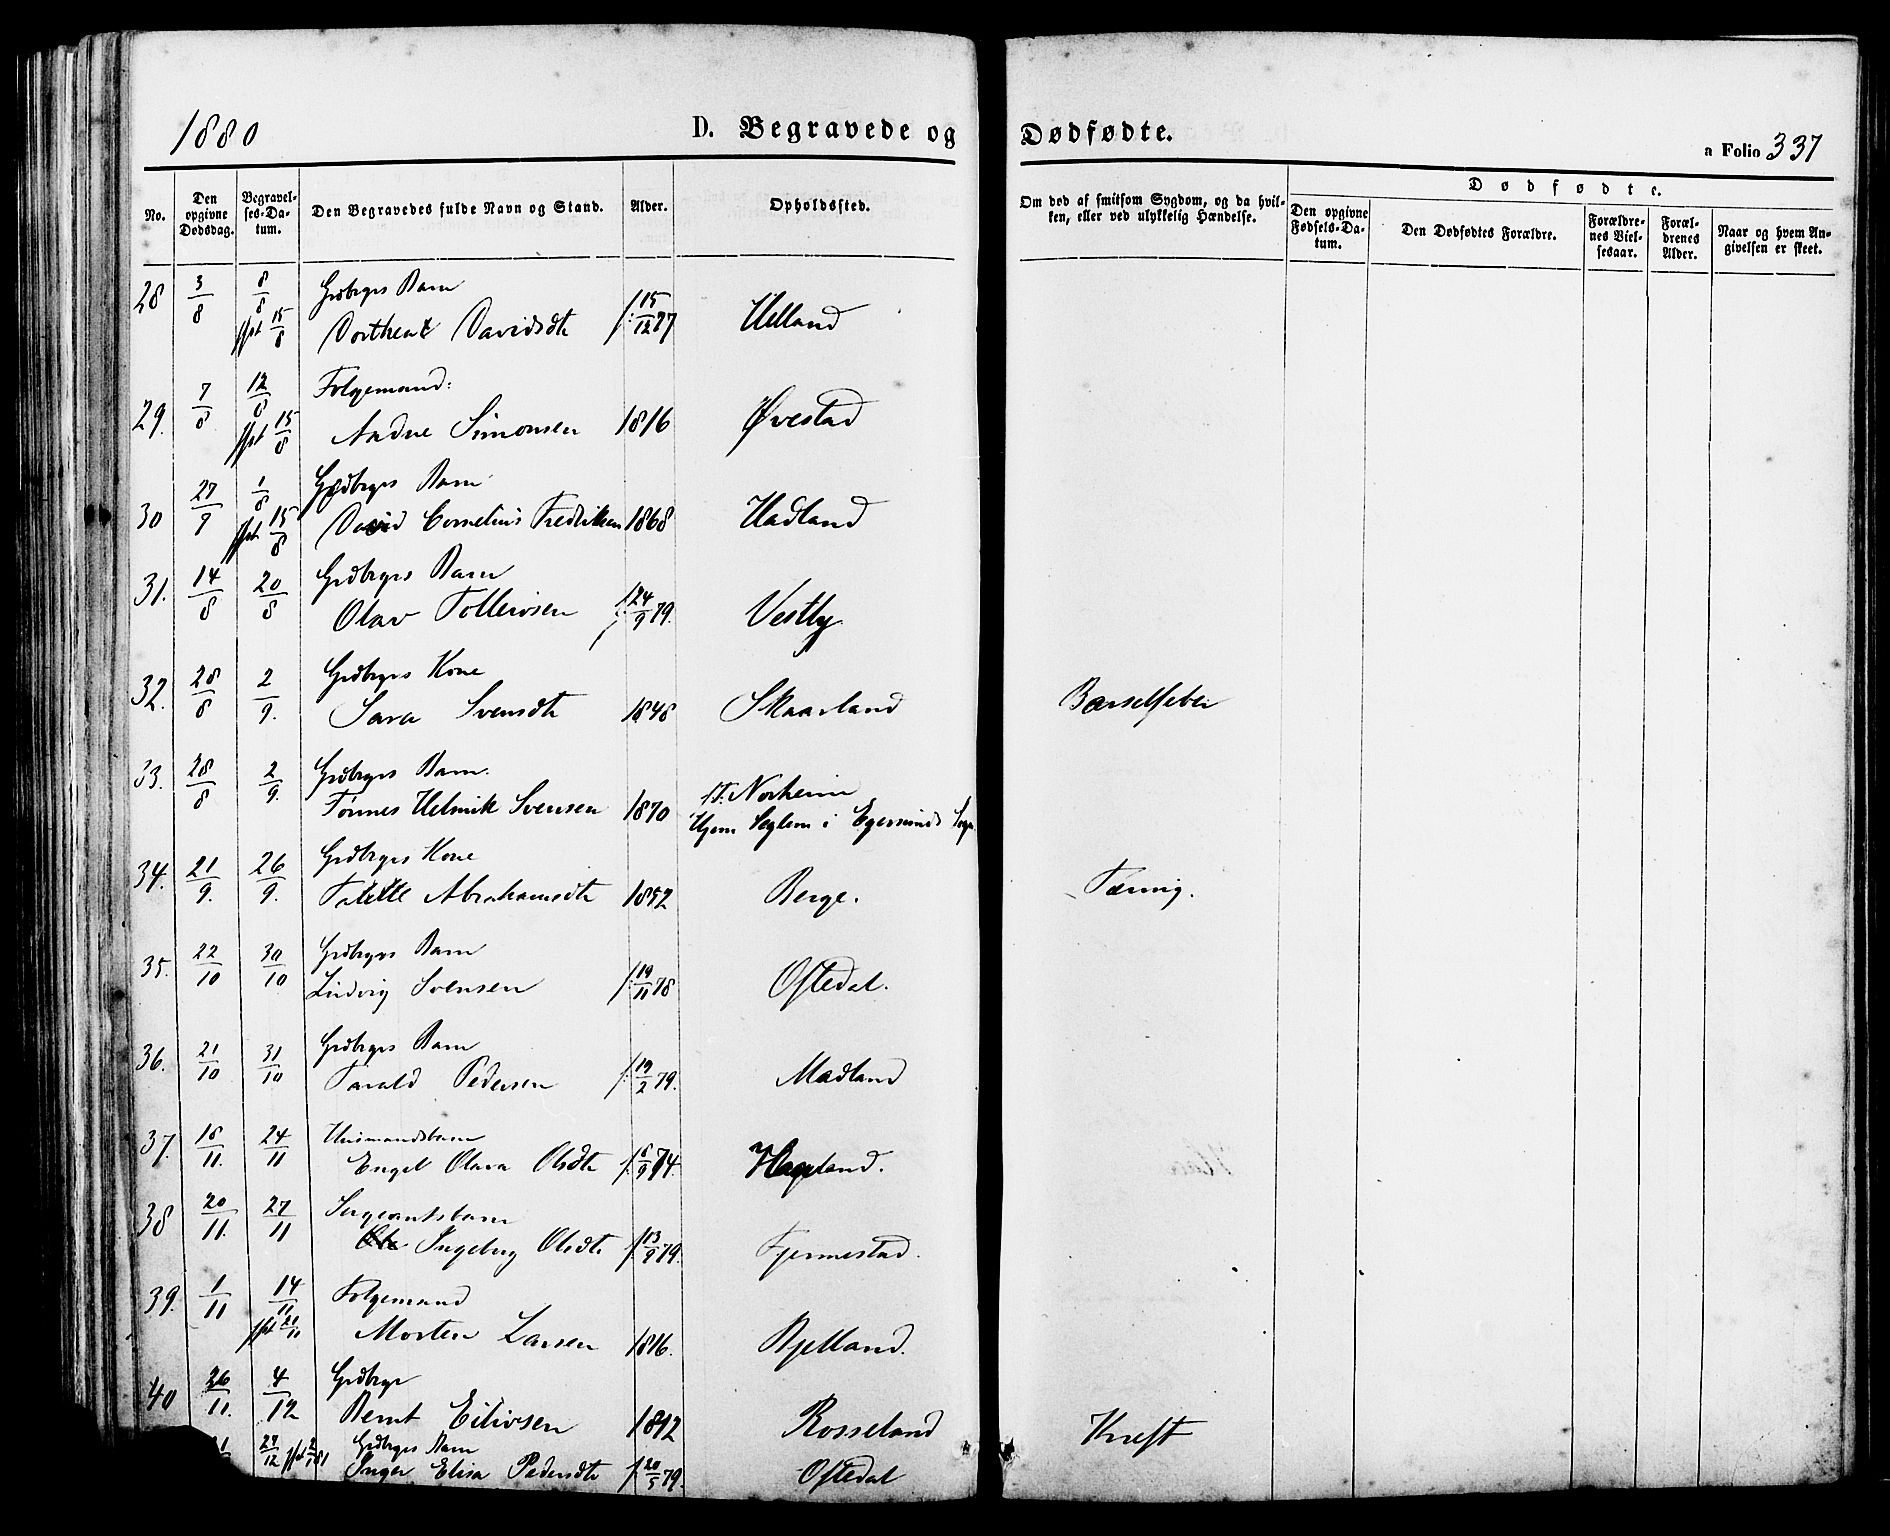 1880
D. Begravede og Dødfødte.
a Folio 337
No.
Den opgivne Dødsdag.
Begravelses-Datum.
Den Begravedes fulde Navn og Stand.
Alder.
Opholdssted.
Om død af smitsom Sygdom, og da hvilken, eller ved ulykkelig Hændelse.
Dødfødte.
Den opgivne Fødsels-Datum.
Den Dødfødtes Forældre.
Forældrenes Vielsesaar.
Forældrenes Alder.
Naar og hvem Angivelsen er skeet.
28 3/8 8/8 Grdbrgrs Barn
jfst 15/8 Davidsdtr f. 15/12 77 Helland
29. 7/8 12/8 Folgemand:
jfst 15/8 Simonsen 1816 Øvestad
30 27/9 1/8 Grdbrgrs Barn
jfst 15/8 David Cornelius Fredriksen 1868 Hadland
31. 14/8 20/8 Grdbrgrs Barn
Olav Tollevsen f. 24/9 79. Vestly
32. 28/8 2/9. Grdbrgrs Kone
Sara Svensdtr 1848 Skaarland Barselfeber
33. 28/8 2/9. Grdbrgrs Barn. st. Norheim
Tønnes Helmik Svensen 1870 Hjem Seglem i Egersunds Sogn
34. 21/9. 26/9. Grdbrgrs Kone
Abrahamsdtr 1852 Berge. Tæring.
35. 22/10 30/10 Grdbrgrs Barn
Ludvig Svensen f. 19/11 78 Oftedal.
36. 21/10 31/10 Grdbrgrs Barn
Tarald Pedersen f. 19/2 79. Madland
37. 18/11. 24/11 Husmandsbarn
Engel Olava Olsdtr f. 6/9 74. Hageland.
38 20/11. 27/11 Sergeantsbarn
Ingeborg Olsdtr f. 13/9 79. Fjermestad.
39. 1/11 14/11 Folgemand
jfst 21/11 Morten Larsen 1816. Bjelland.
40 26/11. 4/12 Grdbrgr
Bernt Eilivsen 1842 Rosseland Kreft
27/12 jfst 2/1 81 Grdbrgrs Barn
Inger Elisa Pedersdtr f. 20/5 79. Oftedal